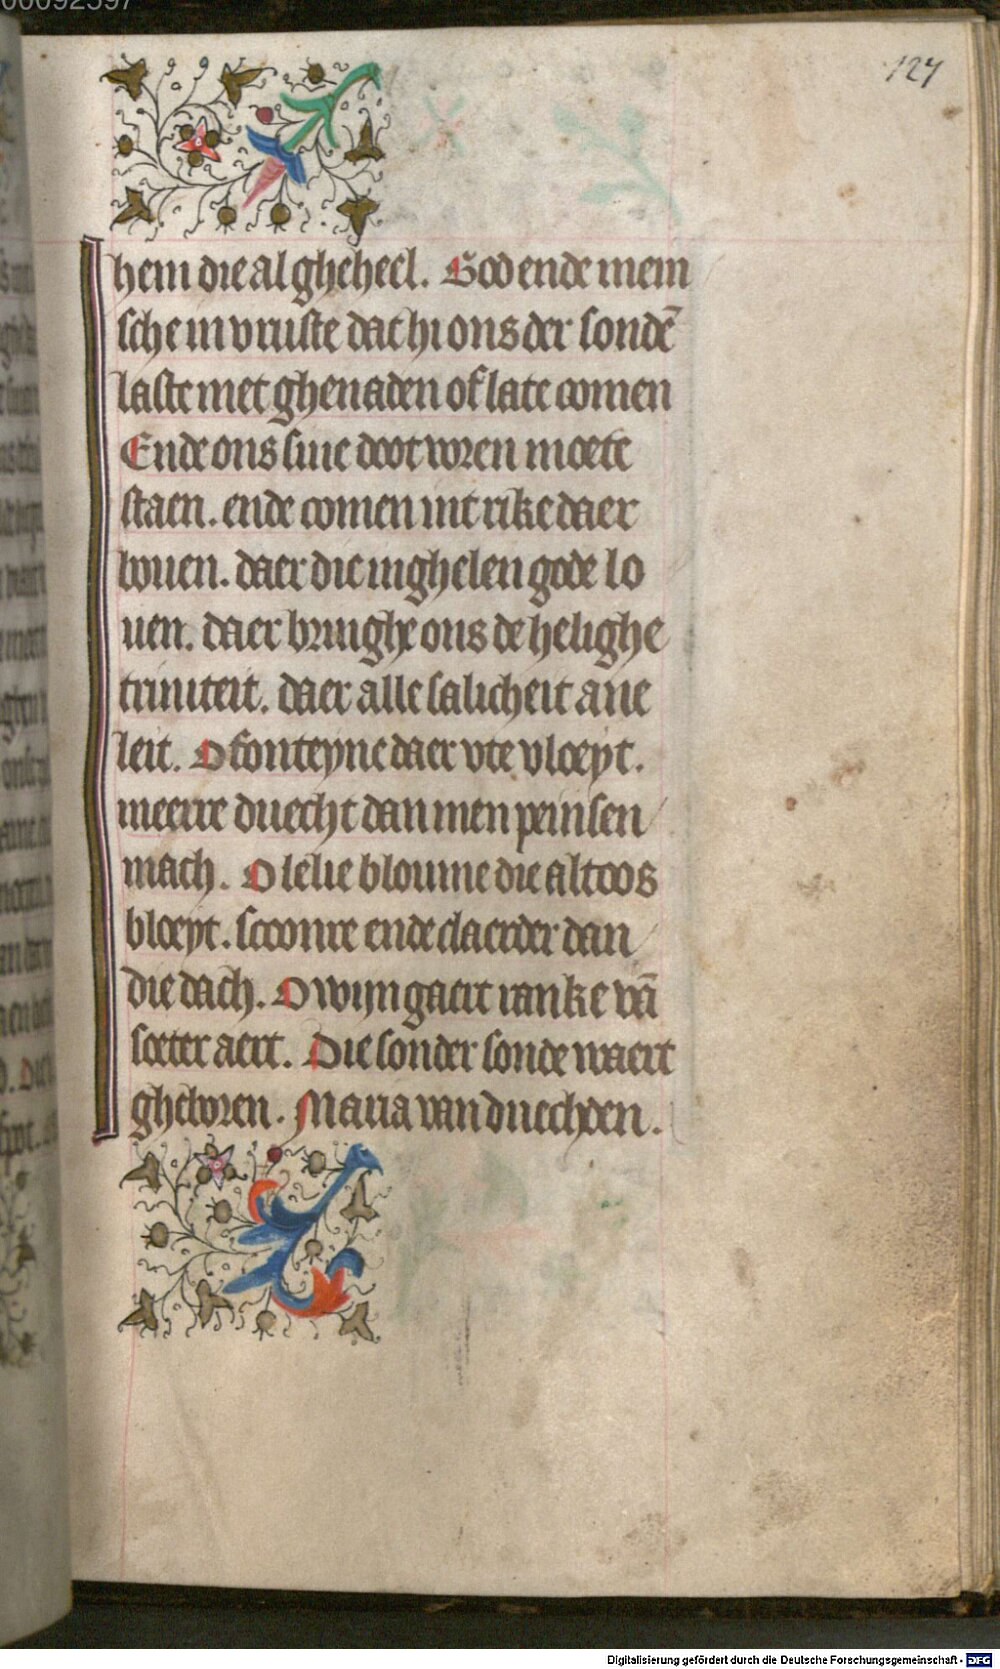 00092597
127
hem die al gheheel. God ende mem
sche in vruste dat hi ons der sondē
laste met ghenaden of late comen
Ende ons sine doot voren moete
staen. ende comen int rike daer
bouen. daer die inghelen gode lo
uen. daer bringhe ons de helighe
triniteit. daer alle salicheit ane
leit. O fonteyne daer vte vloeyt.
meerre duecht dan men peinsen
mach. O lelie bloume die altoos
bloeyt. scoonre ende claerder dan
die dach. O wijngaert ranke vā
soeter aert. Die sonder sonde waert
gheboren. Maria van duechden.
Digitalisierung gefördert durch die Deutsche Forschungsgemeinschaft - DFG